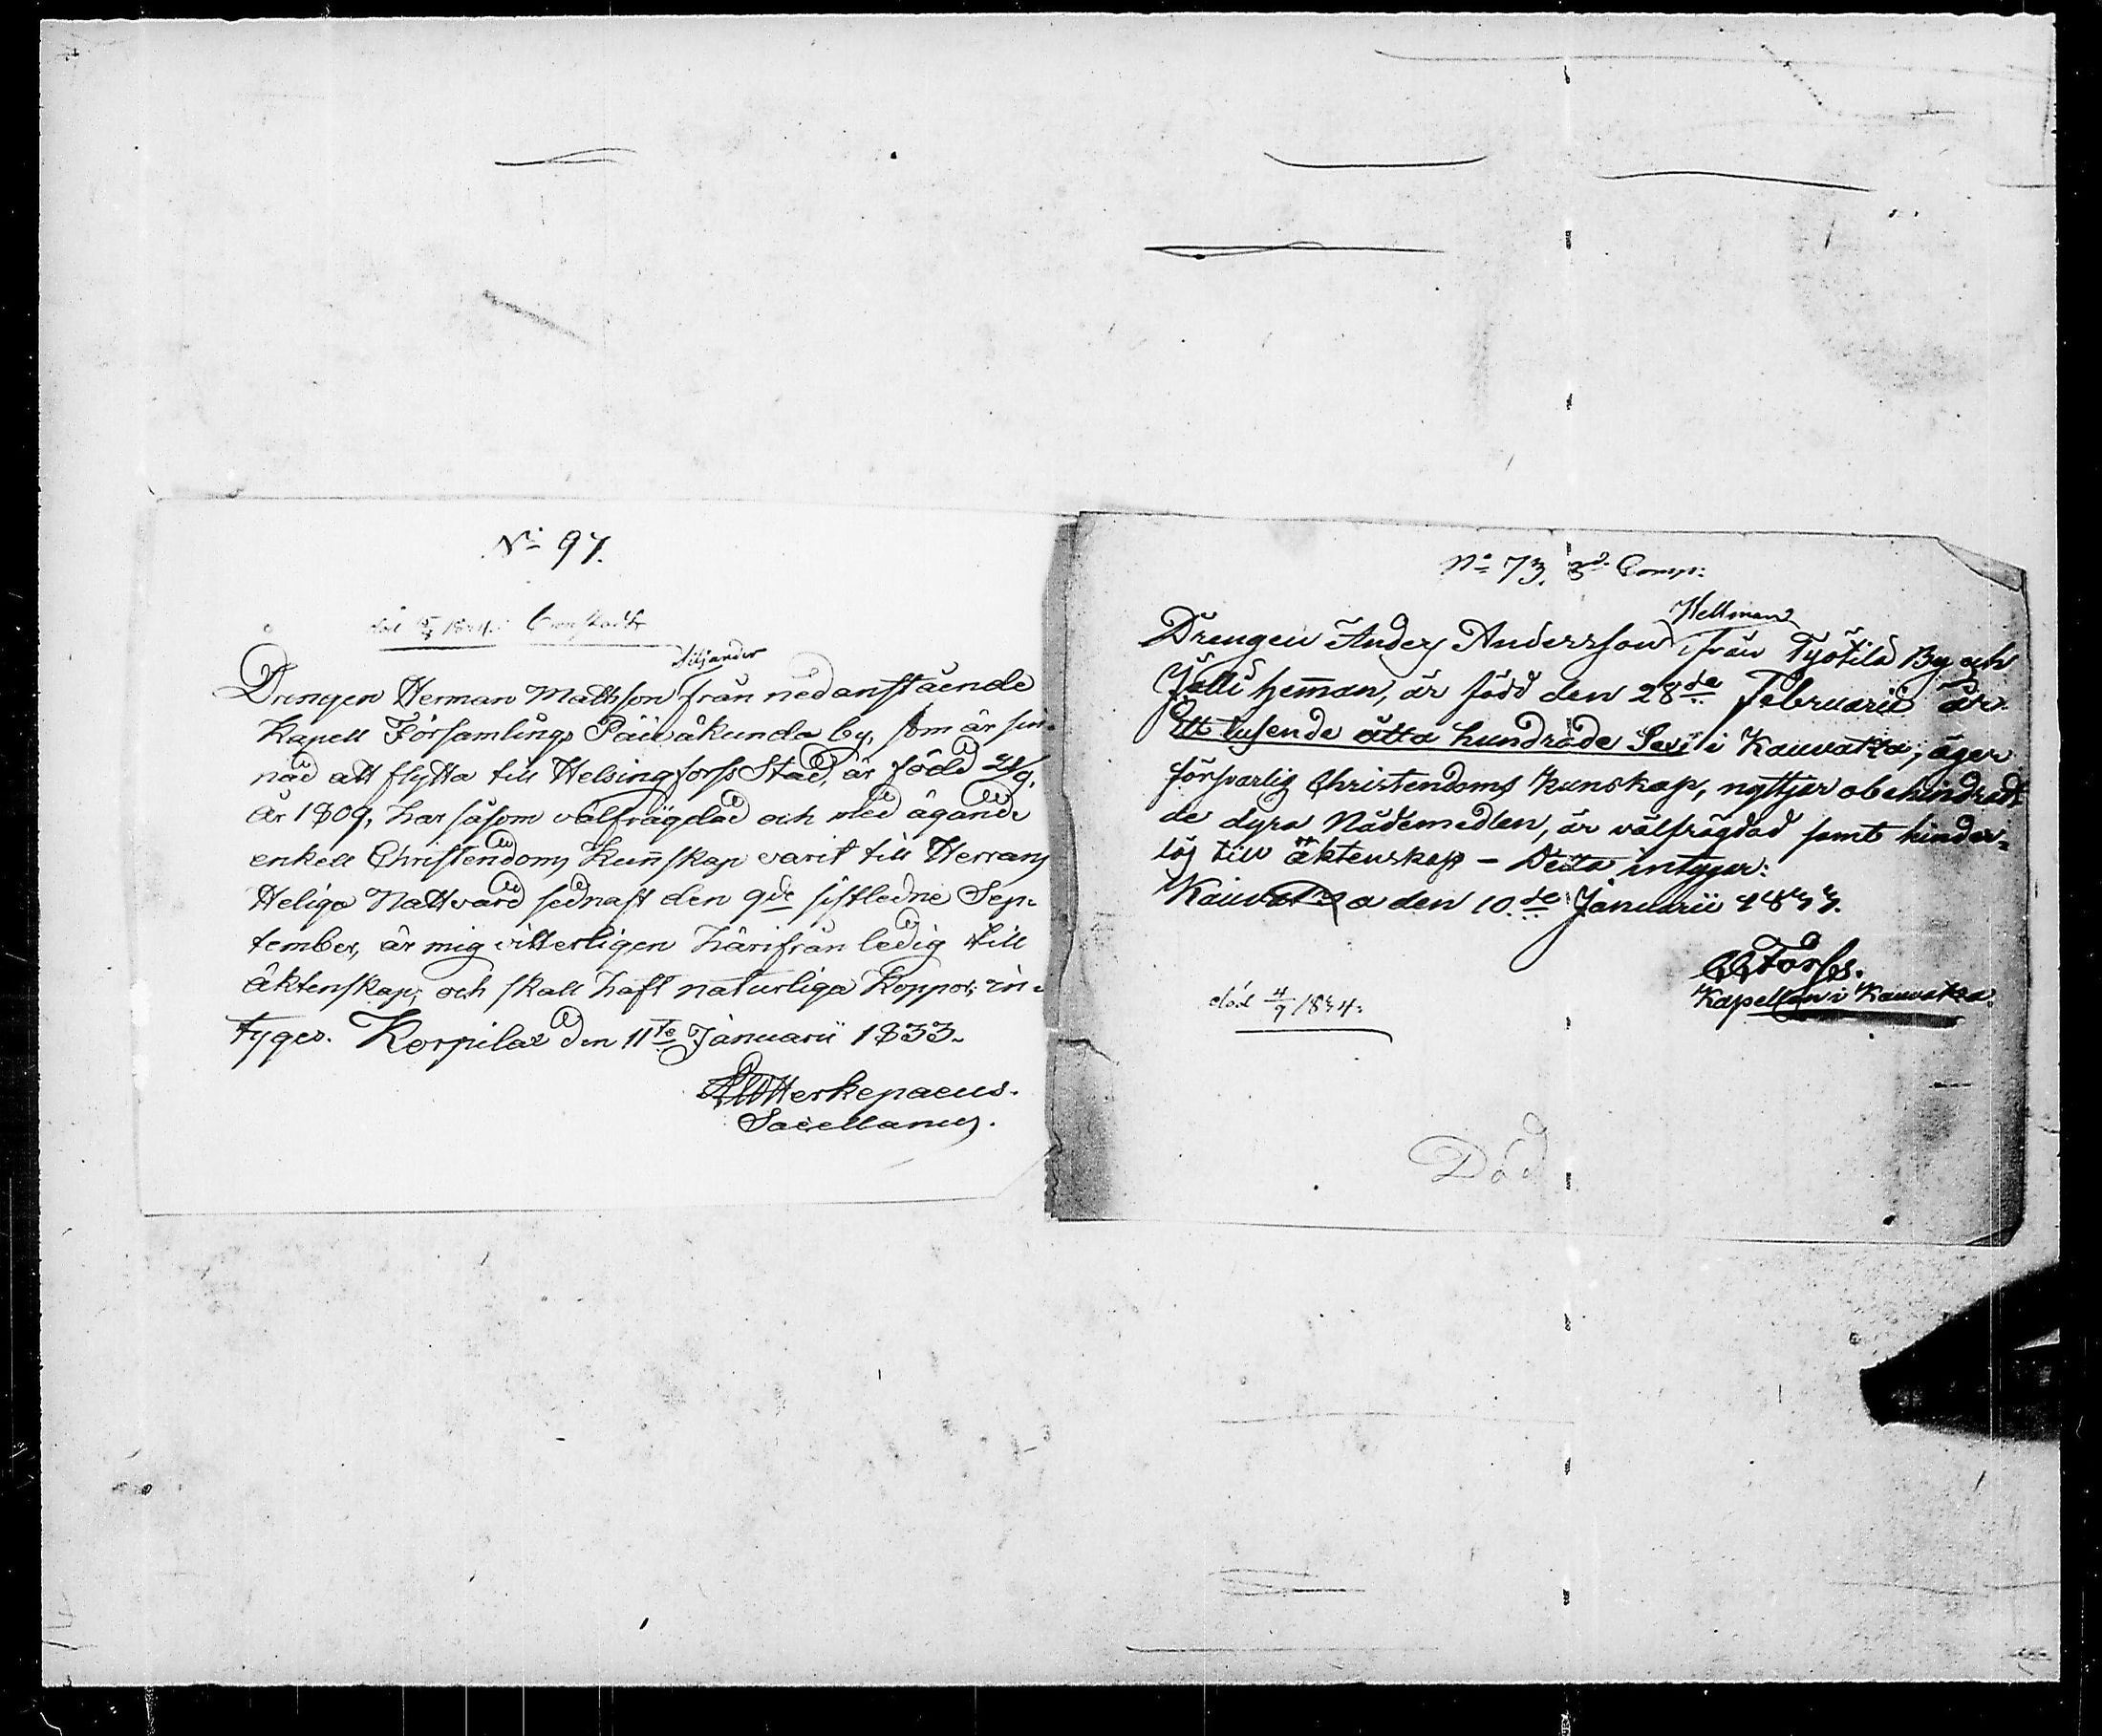 No 97.
död 1834 i Cronstadt
Siljander
Drengen Herman Mattsson från nedanstående
Kapell Församlings Päiväkunda by, som är sin-
nad att flytta till Helsingforss Stad, är född 21/9.
år 1809, har såsom välfrägdad och med ägande
enkell Christendoms Kunskap varit till Herrans
Heliga Nattvard sednast den 9de sistledne Sep-
tember, är mig vitterligen härifrån ledig till
äktenskap; och skall haft naturliga Koppor, in-
tyges. Korpilax den 11te Januarii 1833.
Herkepaeus.
Sacellanus.
No 73. 3d. Comp:
Hellman
Drengen Anders Andersson, från Työtilä By och
Jälli heman, är född den 28de Februarii år
Ett tusende åtta hundrade Sex i Kauvatsa; äger
försvarlig Christendoms kunskap, nyttjar obehindradt
de dyra Nådemedlen, är välfrägdad samt hinder-
lös till äktenskap – Detta intygar:
Kauvatsa den 10de Januarii 1833.
Forss.
Kapellan i Kauvatsa.
död 4/9 1834.
Död